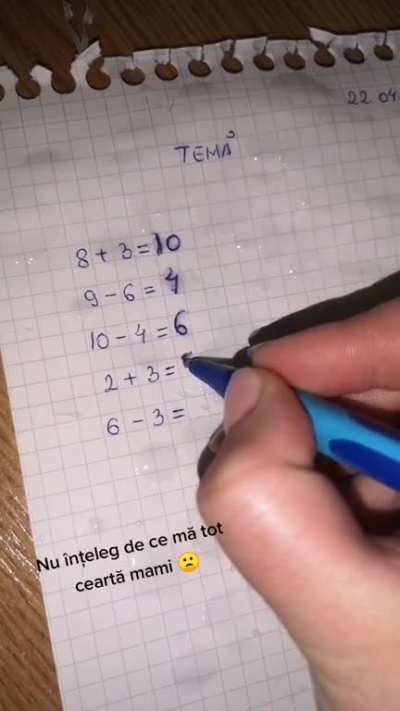 22.04
TEMĂ
8 + 3 = 10
9 - 6 = 4
10 - 4 = 6
2 + 3 =
6 - 3 =
Nu înțeleg de ce mă tot
ceartă mami 🙁